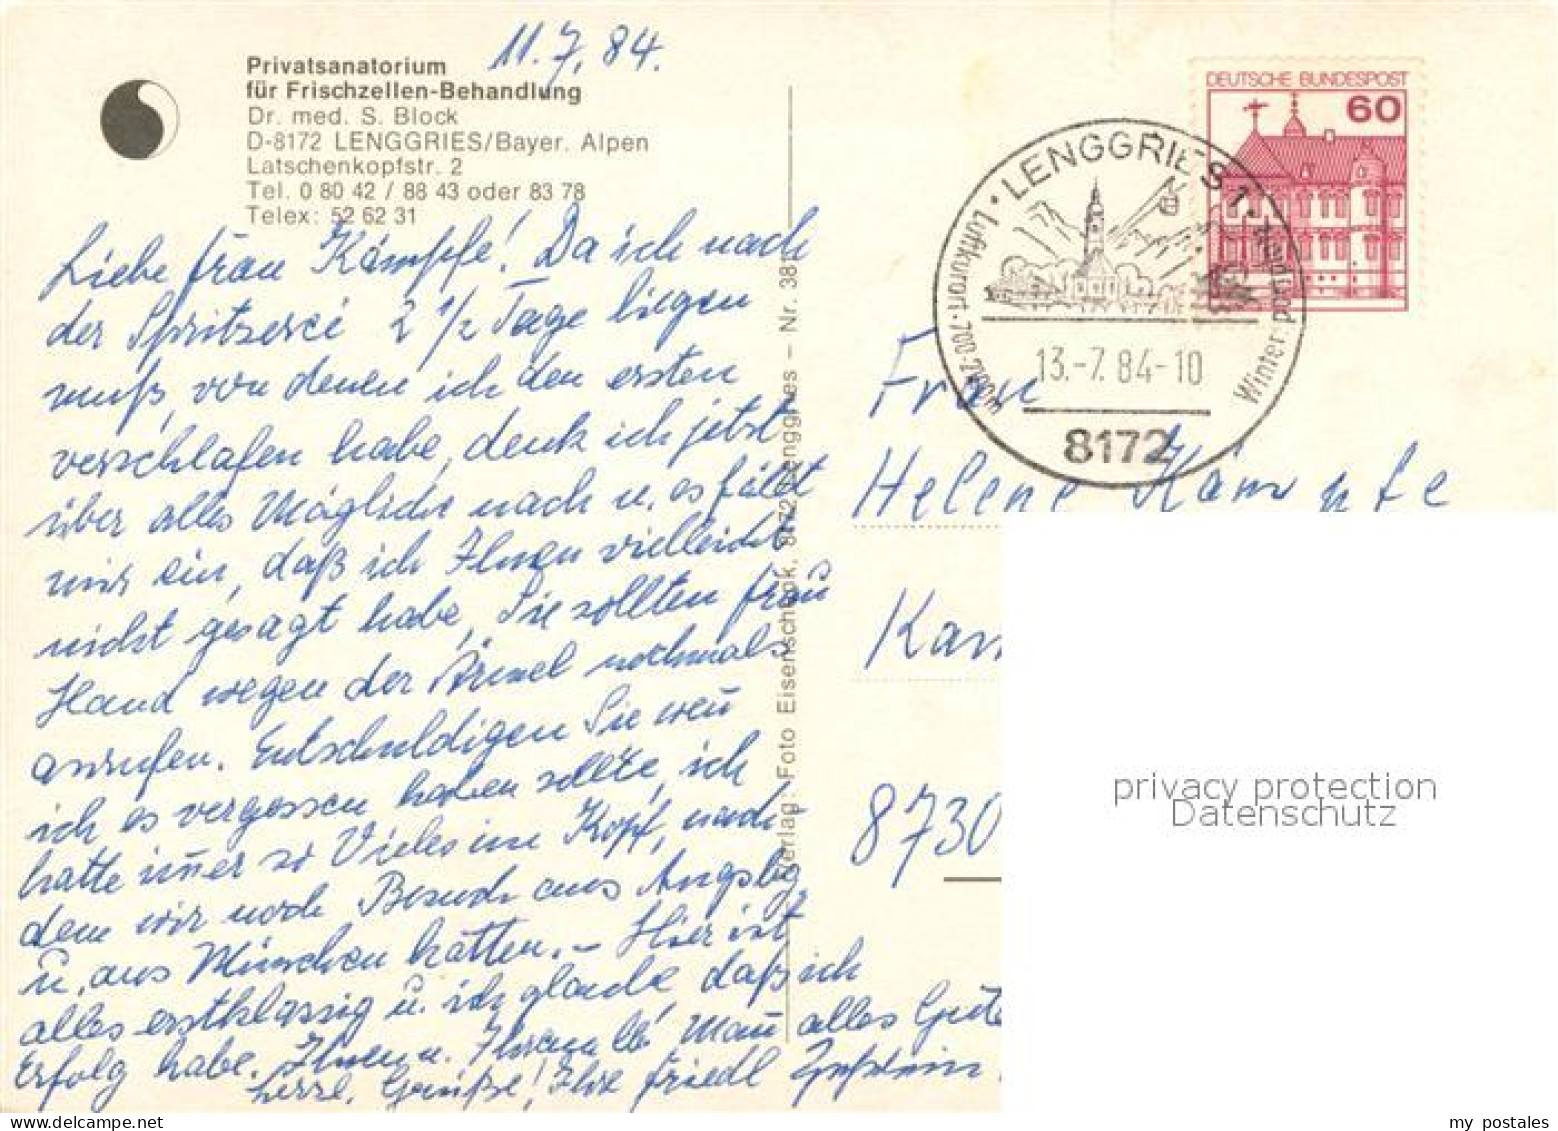 11.7.84.
Privatsanatorium
für Frischzellen-Behandlung
Dr. med. S. Block
D-8172 LENGGRIES/Bayer. Alpen
Latschenkopfstr. 2
Tel. 0 80 42 / 88 43 oder 83 78
Telex: 52 62 31
Liebe Frau Kämpfe! Da ich nach
der Spritzerei 2 1/2 Tage liegen
muß, von denen ich den ersten
verschlafen habe, denk ich jetzt
über alles Mögliche nach u. es fällt
mir ein, daß ich Ihnen vielleicht
nicht gesagt habe, Sie sollten Frau
Hand wegen der Ärmel nochmals
anrufen. Entschuldigen Sie wen̅
ich es vergessen haben sollte, ich
hatte im̅er so Vieles im Kopf, nach-
dem wir noch Besuch aus Augsbg.
u. aus München hatten. – Hier ist
alles erstklassig u. ich glaube, daß ich
Erfolg habe. Ihnen u. Ihrem lb. Man̅ alles Gute
herzl. Grüße! Ihre Friedl
Verlag: Foto Eisenschink, 8172 Lenggries – Nr. 381
DEUTSCHE BUNDESPOST
60
LENGGRIES 1
Luftkurort · 700
Winter
13.-7.84-10
8172
Frau
Helene Kämpfe
Kar
8730
privacy protection
Datenschutz
my postales